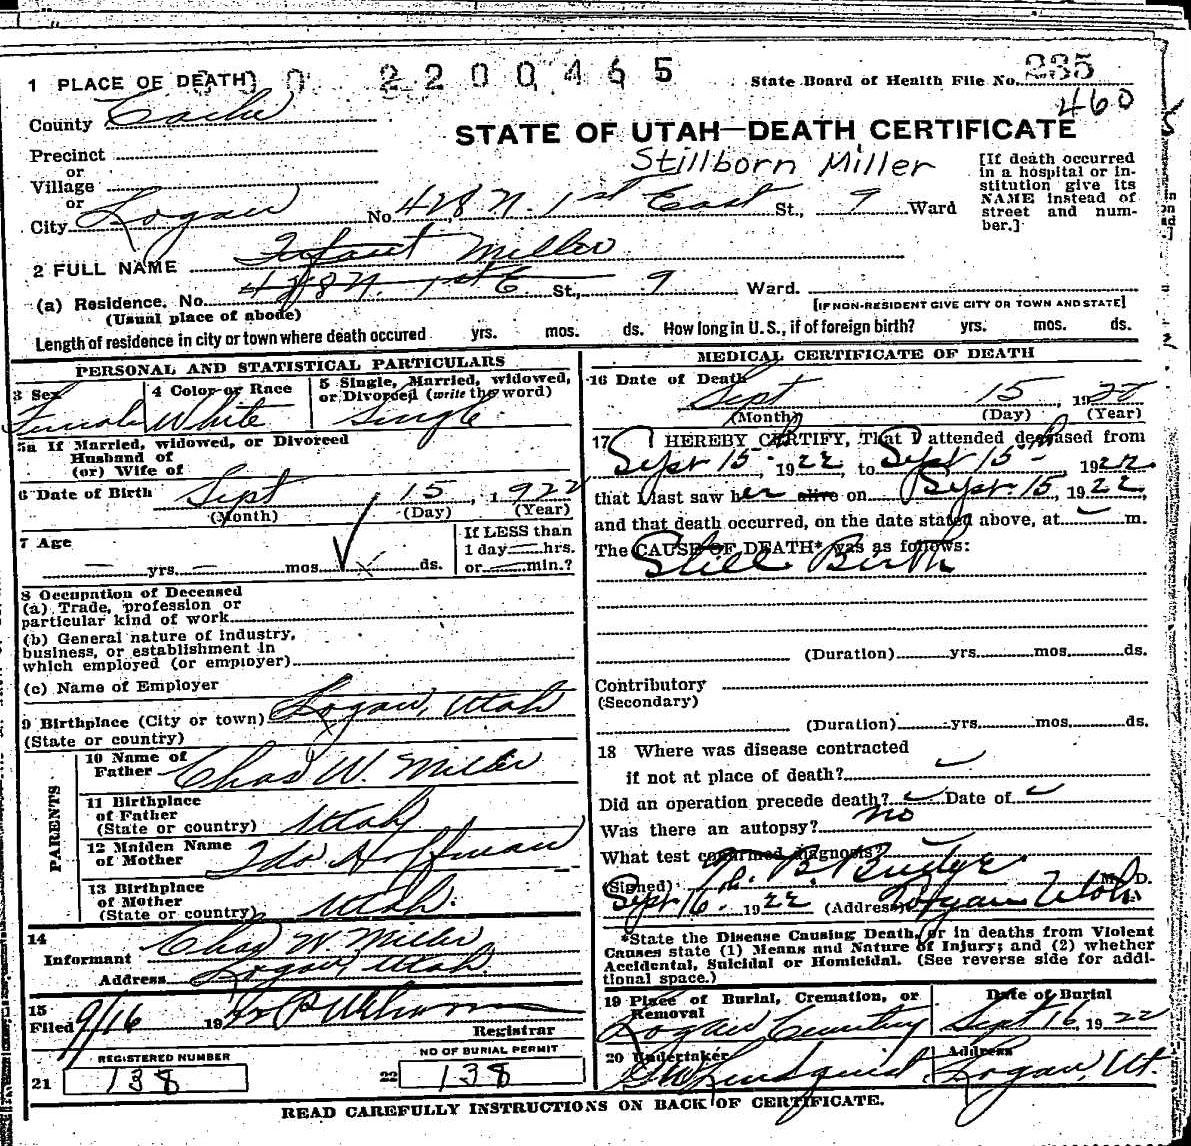 1 PLACE OF DEATH 2200465 State Board of Health File No. 235
460
County Cache
STATE OF UTAH—DEATH CERTIFICATE
Precinct
or
Village
or
City Logan No. 428 N. 1st East St., 9 Ward
Stillborn Miller
[If death occurred
in a hospital or in-
stitution give its
NAME instead of
street and num-
ber.]
2 FULL NAME Infant Miller
(a) Residence. No. 428 N. 1st E St., 9 Ward.
(Usual place of abode) [IF NON-RESIDENT GIVE CITY OR TOWN AND STATE]
Length of residence in city or town where death occured yrs. mos. ds. How long in U. S., if of foreign birth? yrs. mos. ds.
PERSONAL AND STATISTICAL PARTICULARS
3 Sex Female
4 Color or Race White
5 Single, Married, widowed,
or Divorced (write the word)
Single
5a If Married, widowed, or Divorced
Husband of
(or) Wife of
6 Date of Birth Sept 15, 1922
(Month) (Day) (Year)
7 Age
yrs. mos. ds.
If LESS than
1 day hrs.
or min.?
8 Occupation of Deceased
(a) Trade, profession or
particular kind of work
(b) General nature of industry,
business, or establishment in
which employed (or employer)
(c) Name of Employer
9 Birthplace (City or town) Logan, Utah
(State or country)
PARENTS
10 Name of
Father Chas W. Miller
11 Birthplace
of Father
(State or country) Utah
12 Maiden Name
of Mother Ida Hoffman
13 Birthplace
of Mother
(State or country) Utah.
14
Informant Chas W Miller
Address Logan, Utah.
15
Filed 9/16 19
Registrar
REGISTERED NUMBER
21 138
NO OF BURIAL PERMIT
22 138
MEDICAL CERTIFICATE OF DEATH
16 Date of Death Sept 15, 1922
(Month) (Day) (Year)
17 I HEREBY CERTIFY, That I attended deceased from
Sept 15, 1922, to Sept 15, 1922.
that I last saw her alive on Sept. 15, 1922,
and that death occurred, on the date stated above, at m.
The CAUSE OF DEATH* was as follows:
Still Birth
(Duration) yrs. mos. ds.
Contributory
(Secondary)
(Duration) yrs. mos. ds.
18 Where was disease contracted
if not at place of death?
Did an operation precede death? Date of
Was there an autopsy? no
What test confirmed diagnosis?
(Signed) B. Budge M. D.
Sept 16. 1922 (Address) Logan Utah
*State the Disease Causing Death, or in deaths from Violent
Causes state (1) Means and Nature of Injury; and (2) whether
Accidental, Suicidal or Homicidal. (See reverse side for addi-
tional space.)
19 Place of Burial, Cremation, or
Removal
Logan Cemetery
Date of Burial
Sept 16, 1922
20 Undertaker
Lindquist
Address
Logan, Ut.
READ CAREFULLY INSTRUCTIONS ON BACK OF CERTIFICATE.